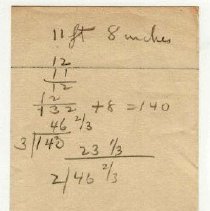 11 ft 8 inches
12
11
12
12
132 + 8 = 140
46 2/3
3 140
23 1/3
2 46 2/3